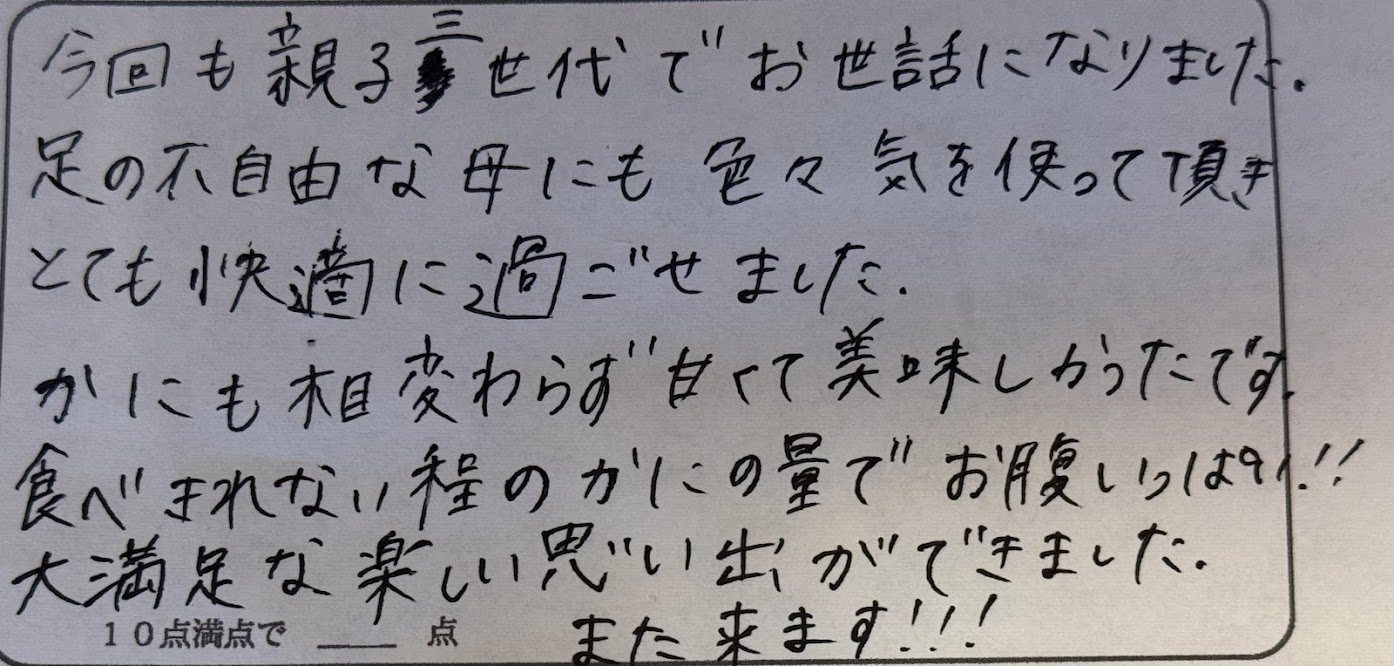 今回も親子三世代でお世話になりました.
足の不自由な母にも色々気を使って頂き
とても快適に過ごせました.
かにも相変わらず甘くて美味しかったです.
食べきれない程のかにの量でお腹いっぱい!!
大満足な楽しい思い出ができました.
また来ます!!!
10点満点で ____ 点